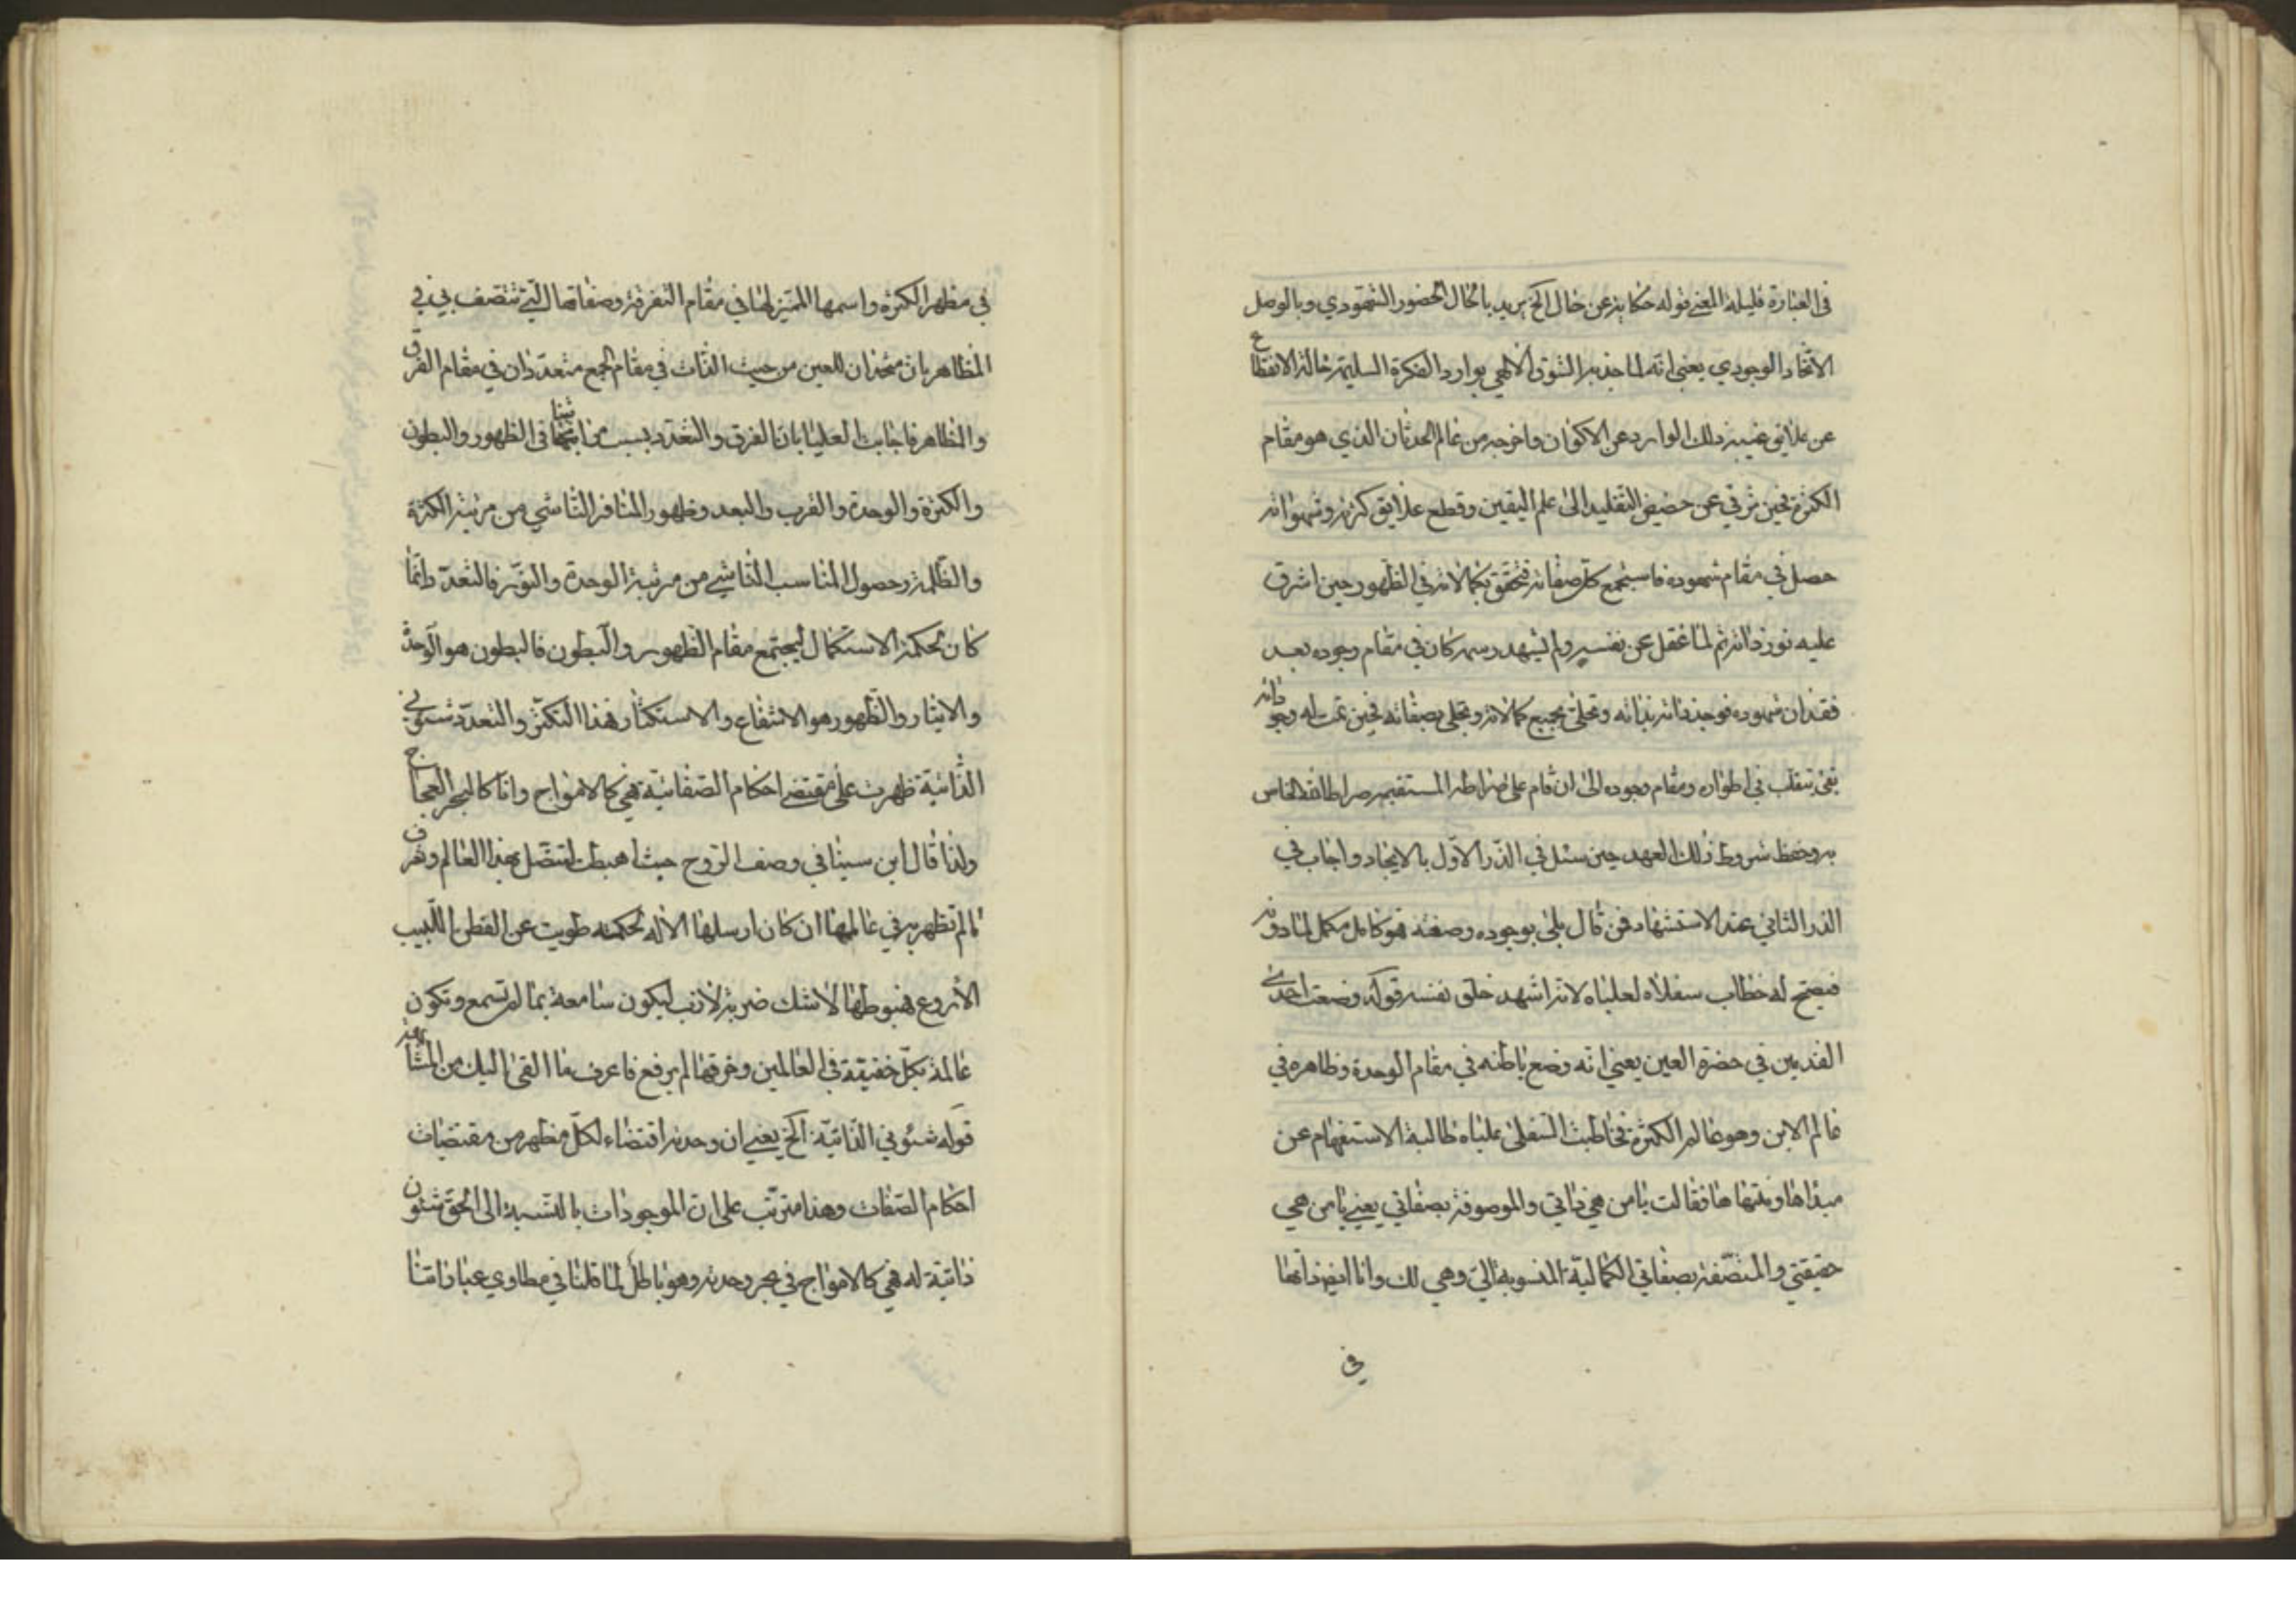 في العبارة قليلة المعنى قوله حكاية عن حال الخ يريد بالحال الحضور الشهودي وبالوصل
الاتحاد الوجودي يعني انه لما جذبه الشوق الالهي بوارد الفكرة السليمة حالة الانقطاع
عن علايق غيبه ذلك الوارد عن الاكوان واخرجه من عالم الحدثان الذي هو مقام
الكثرة فحين ترقي عن حضيض التقليد الى علم اليقين وقطع علايق كثرته وشهواته
حصل في مقام شهوده فاستجمع كل صفاته فتحقق بكمالاته في الظهور حين اشرق
عليه نور ذاته ثم لما غفل عن نفسه ولم يشهد رسمه كان في مقام وجوده بعد
فقدان شهوده فوجد ذاته بذاته وتحلى بجميع كمالاته وتجلى بصفاته فحين تمت له وجو داته
بقى يتقلب في اطواره ومقام وجوده الى ان قام على صراطه المستقيم صراط الله الخاص
به وحفظ شروط ذلك العهد حين سئل في الذر الاول بالايجاد واجاب في
الذر الثاني عند الاستشهاد فمن قال بلى بوجوده وصفته فهو كامل مكمل لمادونه
فيصح له خطاب سفلاه لعلياه لانه اشهد خلق نفسه قوله وضعت احدى
القدمين في حضرة العين يعني انه وضع باطنه في مقام الوحدة وظاهره في
عالم الاين وهو عالم الكثرة فخاطبت السفلى علياه طالبة الاستفهام عن
مبداها ومنتهاها فقالت يا من هي ذاتي والموصوفة بصفاتي يعني يا من هي
حقيقتي والمتصفة بصفاتي الكمالية المنسوبة الي وهي لك وانا ايضا ذاتها
في
في مظهر الكثرة واسمها المميز لها في مقام التفرقة وصفاتها التي تتصف بي في
المظاهر بان متحدان للعين من حيث الذات في مقام الجمع متعددان في مقام الفرق
والظاهر فاجابت العليا بان الفرق والتعدد بسبب في الظهور والبطون
والكثرة والوحدة والقرب والبعد وظهور المنافر الناشي من مرتبة الكثرة
والظلمة وحصول المناسب الناشي من مرتبة الوحدة والنور فالتعدد انما
كان لحكمة الاستكمال ليجتمع مقام الظهور والبطون فالبطون هو الوحدة
والايثار والظهور هو الاشفاع والاستكثار فهذا التكثر والتعدد شئوني
الذاتية ظهرت على مقتضى احكام الصفاتية فهي كالامواج وانا كالبحر العجاج
ولذا قال ابن سينا في وصف الروح حيث اهبطت لتتصل بهذا العالم وتعرف
ما لم تظهر به في عالمها ان كان ارسلها الاله لحكمة طويت عن الفطن اللبيب
الاروع فهبوطها لا شك ضربة لازب ليكون سامعة بما لم تسمع وتكون
عالمة بكل خفيقة في العالمين وخرقها لم يرفع فاعرف ما القى اليك من المشا
قوله شئوني الذاتية الخ يعني ان وحدته اقتضاء لكل مظهر من مقتضيات
احكام الصفات وهذا مترتب على ان الموجودات بالنسبة الى الحق شئون
ذاتية له فهي كالامواج في بحر وحدته وهو باطل لما قلنا في مطاوي عباراتنا